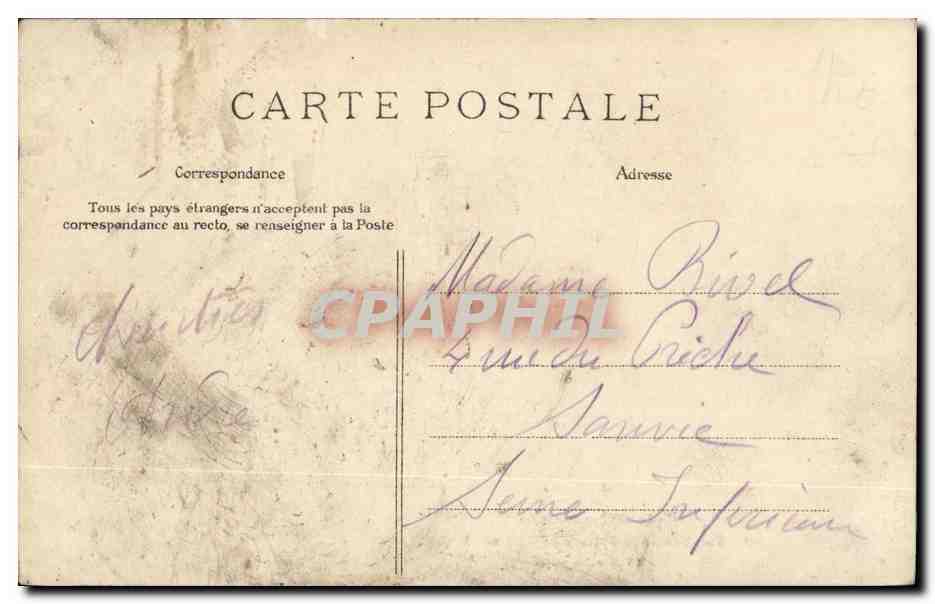 CARTE POSTALE
Correspondance
Tous les pays étrangers n'acceptent pas la
correspondance au recto, se renseigner à la Poste
Adresse
Madame Rivel
4 rue du
Sanvic
Seine Inférieure
CPAPHIL